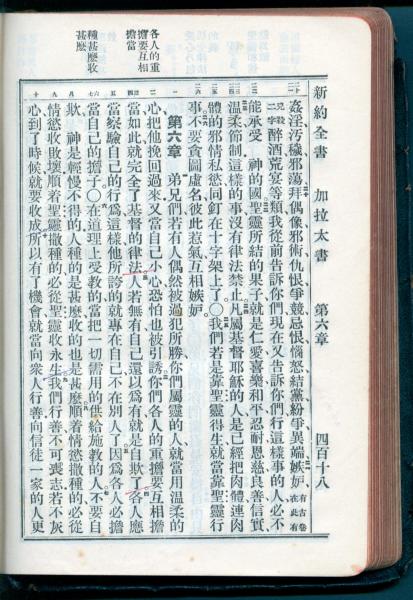 新約全書 加拉太書 第六章 四百十八
姦淫污穢邪蕩拜偶像邪術仇恨爭競忌恨惱怒結黨紛爭異端嫉妒有古卷在此有
兇殺二字醉酒荒宴等類我從前告訴你們現在又告訴你們行這樣事的人必不
能承受 神的國聖靈所結的果子就是仁愛喜樂和平忍耐恩慈良善信實
溫柔節制這樣的事沒有律法禁止凡屬基督耶穌的人是已經把肉體連肉
體的邪情私慾同釘在十字架上了〇我們若是靠聖靈得生就當靠聖靈行
事不要貪圖虛名彼此惹氣互相嫉妒
第六章 弟兄們若有人偶然被過犯所勝你們屬靈的人就當用溫柔的
各人的重
擔要互相
擔當
心把他挽回過來又當自己小心恐怕也被引誘你們各人的重擔要互相擔
當如此就完全了基督的律法人若無有自己還以爲有就是自欺了各人應
當察驗自己的行爲這樣他所誇的就專在自己不在別人了因爲各人必擔
當自己的擔子〇在道理上受教的當把一切需用的供給施教的人不要自
種甚麽收
甚麽
欺 神是輕慢不得的人種的是甚麽收的也是甚麽順着情慾撒種的必從
情慾收敗壞順着聖靈撒種的必從聖靈收永生我們行善不可喪志若不灰
心到了時候就要收成所以有了機會就當向衆人行善向信徒一家的人更